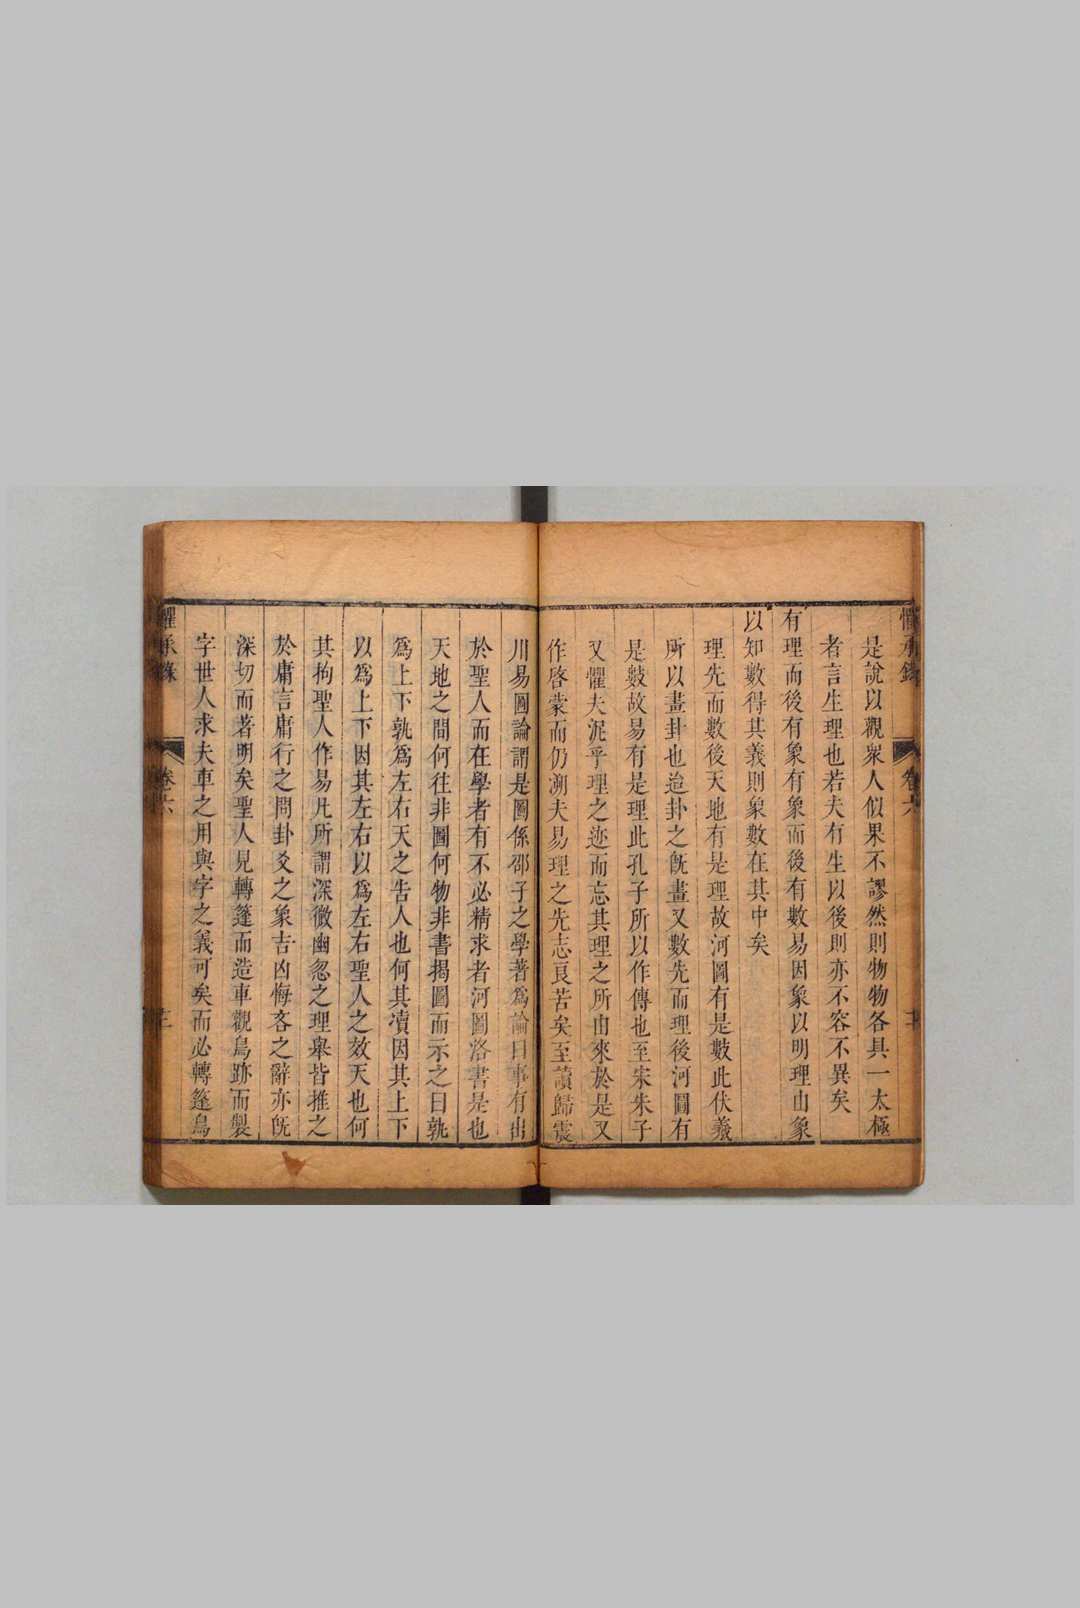 是說以觀衆人似果不謬然則物物各具一太極
者言生理也若夫有生以後則亦不容不異矣
有理而後有象有象而後有數易因象以明理由象
以知數得其義則象數在其中矣
理先而數後天地有是理故河圖有是數此伏羲
所以畫卦也迨卦之旣畫又數先而理後河圖有
是數故易有是理此孔子所以作傳也至宋朱子
又懼夫泥乎理之迹而忘其理之所由來於是又
作啓蒙而仍溯夫易理之先志良苦矣至讀歸震
川易圖論謂是圖係邵子之學著爲論曰事有出
於聖人而在學者有不必精求者河圖洛書是也
天地之間何往非圖何物非書揭圖而示之曰孰
爲上下孰爲左右天之告人也何其凟因其上下
以爲上下因其左右以爲左右聖人之效天也何
其拘聖人作易凡所謂深微幽忽之理舉皆推之
於庸言庸行之間卦爻之象吉凶悔吝之辭亦旣
深切而著明矣聖人見轉篷而造車觀鳥跡而製
字世人求夫車之用與字之義可矣而必轉篷鳥
卷六